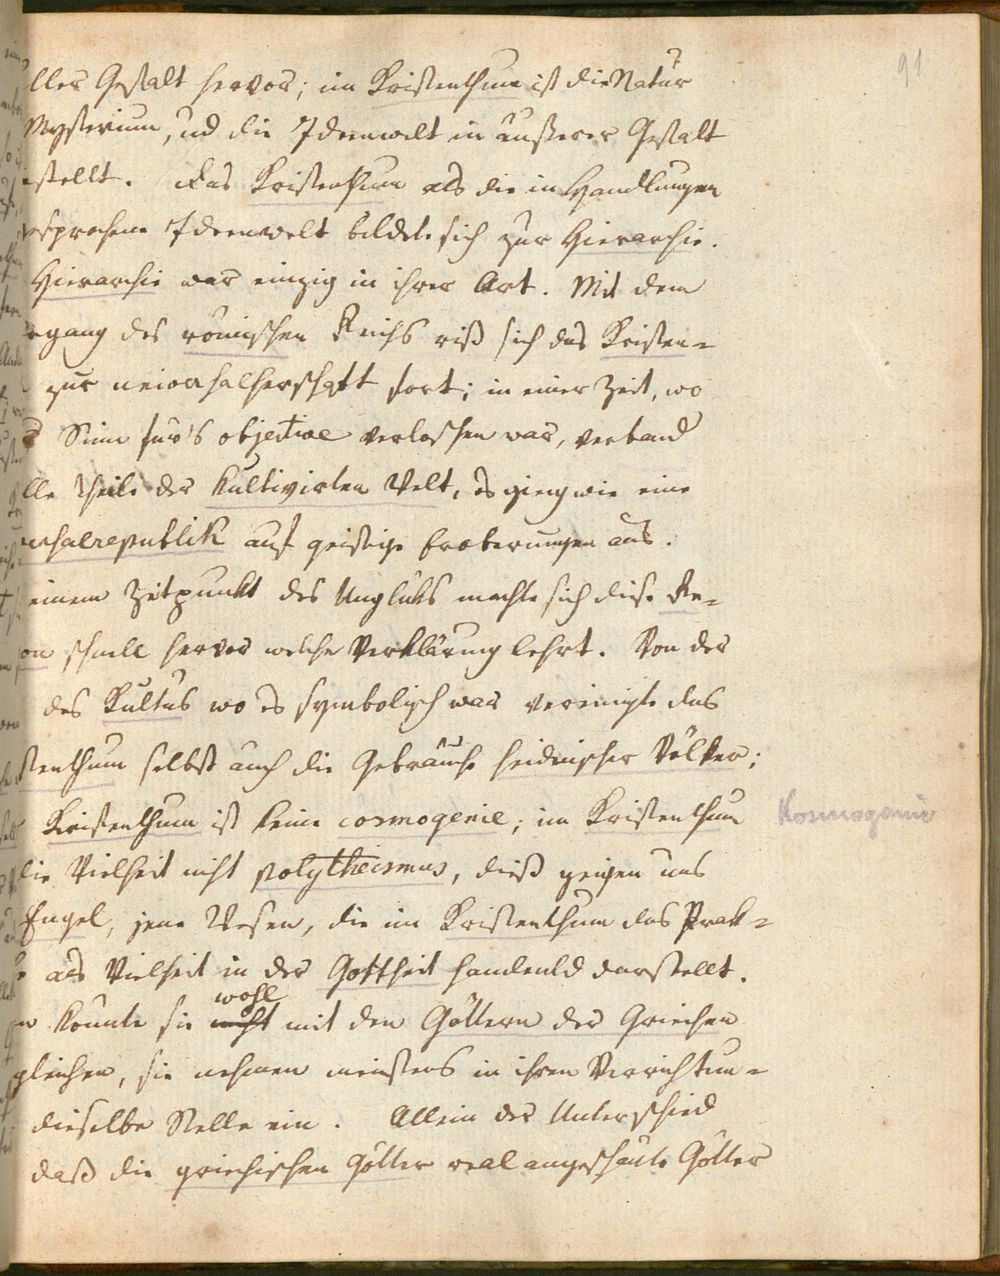 91
ller Gestalt hervor; im Kristenthum ist die Natur
Mysterium, ud die Ideenwelt in äußerer Gestalt
stellt. Das Kristenthum als die in Handlungen
sprochene Ideenwelt bildete sich zur Hierarchie.
Hierarchie war einzig in ihrer Art. Mit dem
rgang des römischen Reichs riß sich das Kristen=
zur neiversalherschaft fort; in einer Zeit, wo
Sinn für's objective verloschen war, verband
lle Theile der kultivirten Welt, es gieng wie eine
versalrepublik auf geistige Eroberungen aus.
einem Zeitpunkt des Unglüks machte sich diese Re=
on schnell hervor welche Verklärung lehrt. Von der
des Kultus wo es symbolisch war vereinigte das
stenthum selbst auch die Gebräuche heidnischer Völker;
Kristenthum ist keine cosmogenie; im Kristenthum
Kosmogonie
die Vielheit nicht polytheismus, dieß zeigen uns
Engel, jene Wesen, die im Kristenthum das Prak=
als Vielheit in der Gottheit handelnd darstellt.
wohl
n könnte sie nicht mit den Göttern der Griechen
gleichen, sie nehmen meistens in ihren Verrichtun=
dieselbe Stelle ein. Allein der Unterschied
daß die griechischen Götter real angeschaute Götter